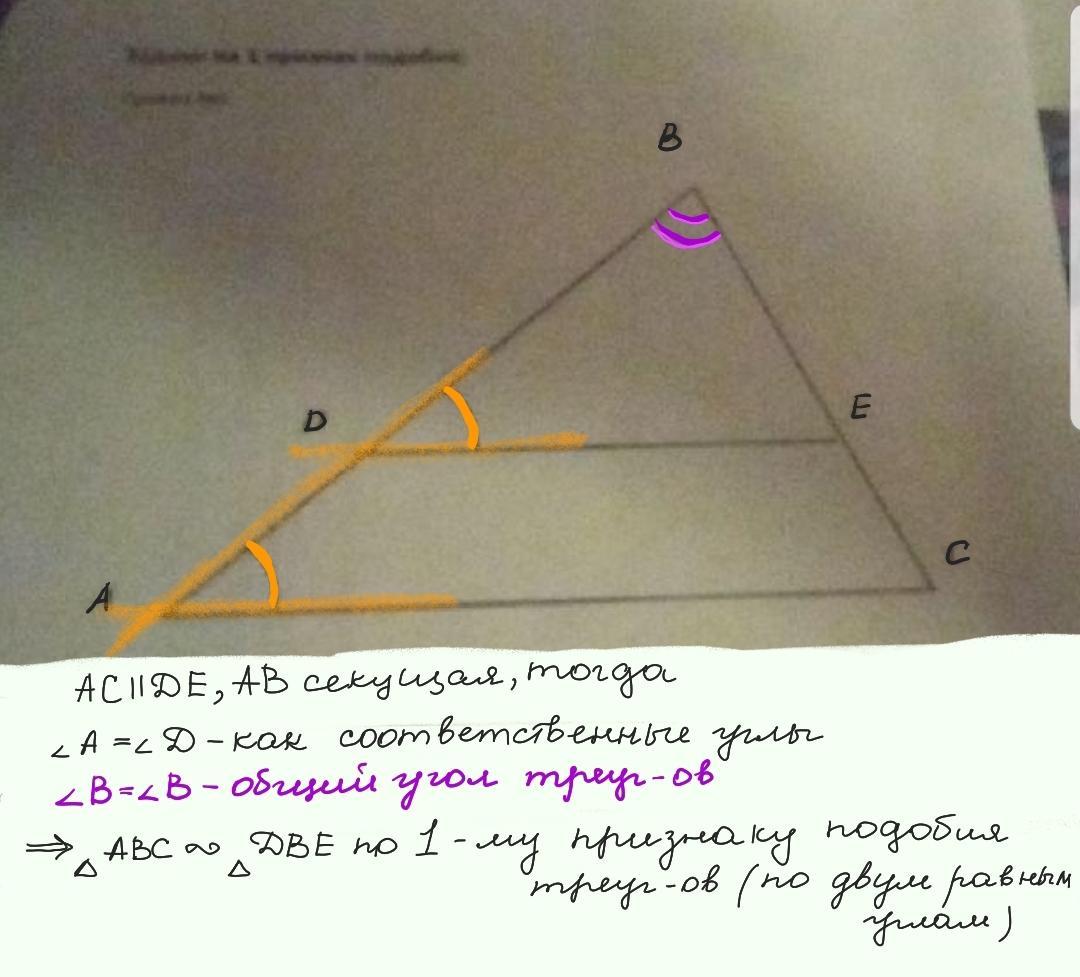 B
D
E
A
C
AC||DE, AB секущая, тогда
∠A = ∠D - как соответственные углы
∠B=∠B - общий угол треуг-ов
⇒ △ABC ∾ △DBE по 1-му признаку подобия
треуг-ов (по двум равным
углам)